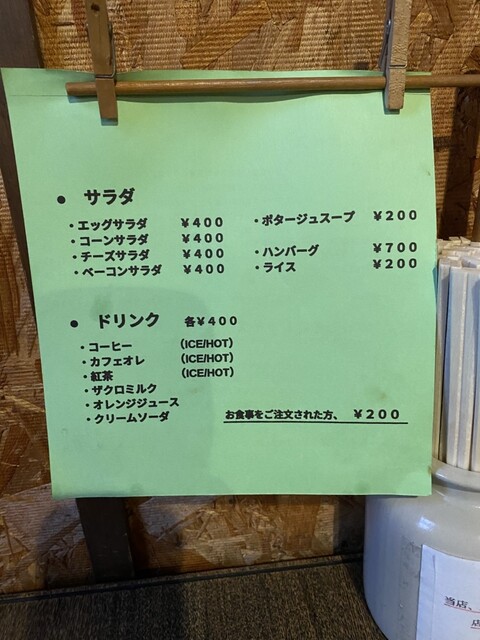 ● サラダ
・エッグサラダ ￥４００
・コーンサラダ ￥４００
・チーズサラダ ￥４００
・ベーコンサラダ ￥４００
・ポタージュスープ ￥２００
・ハンバーグ ￥７００
・ライス ￥２００
● ドリンク 各￥４００
・コーヒー （ICE/HOT）
・カフェオレ （ICE/HOT）
・紅茶 （ICE/HOT）
・ザクロミルク
・オレンジジュース
・クリームソーダ
お食事をご注文された方、 ￥２００
当店、
店